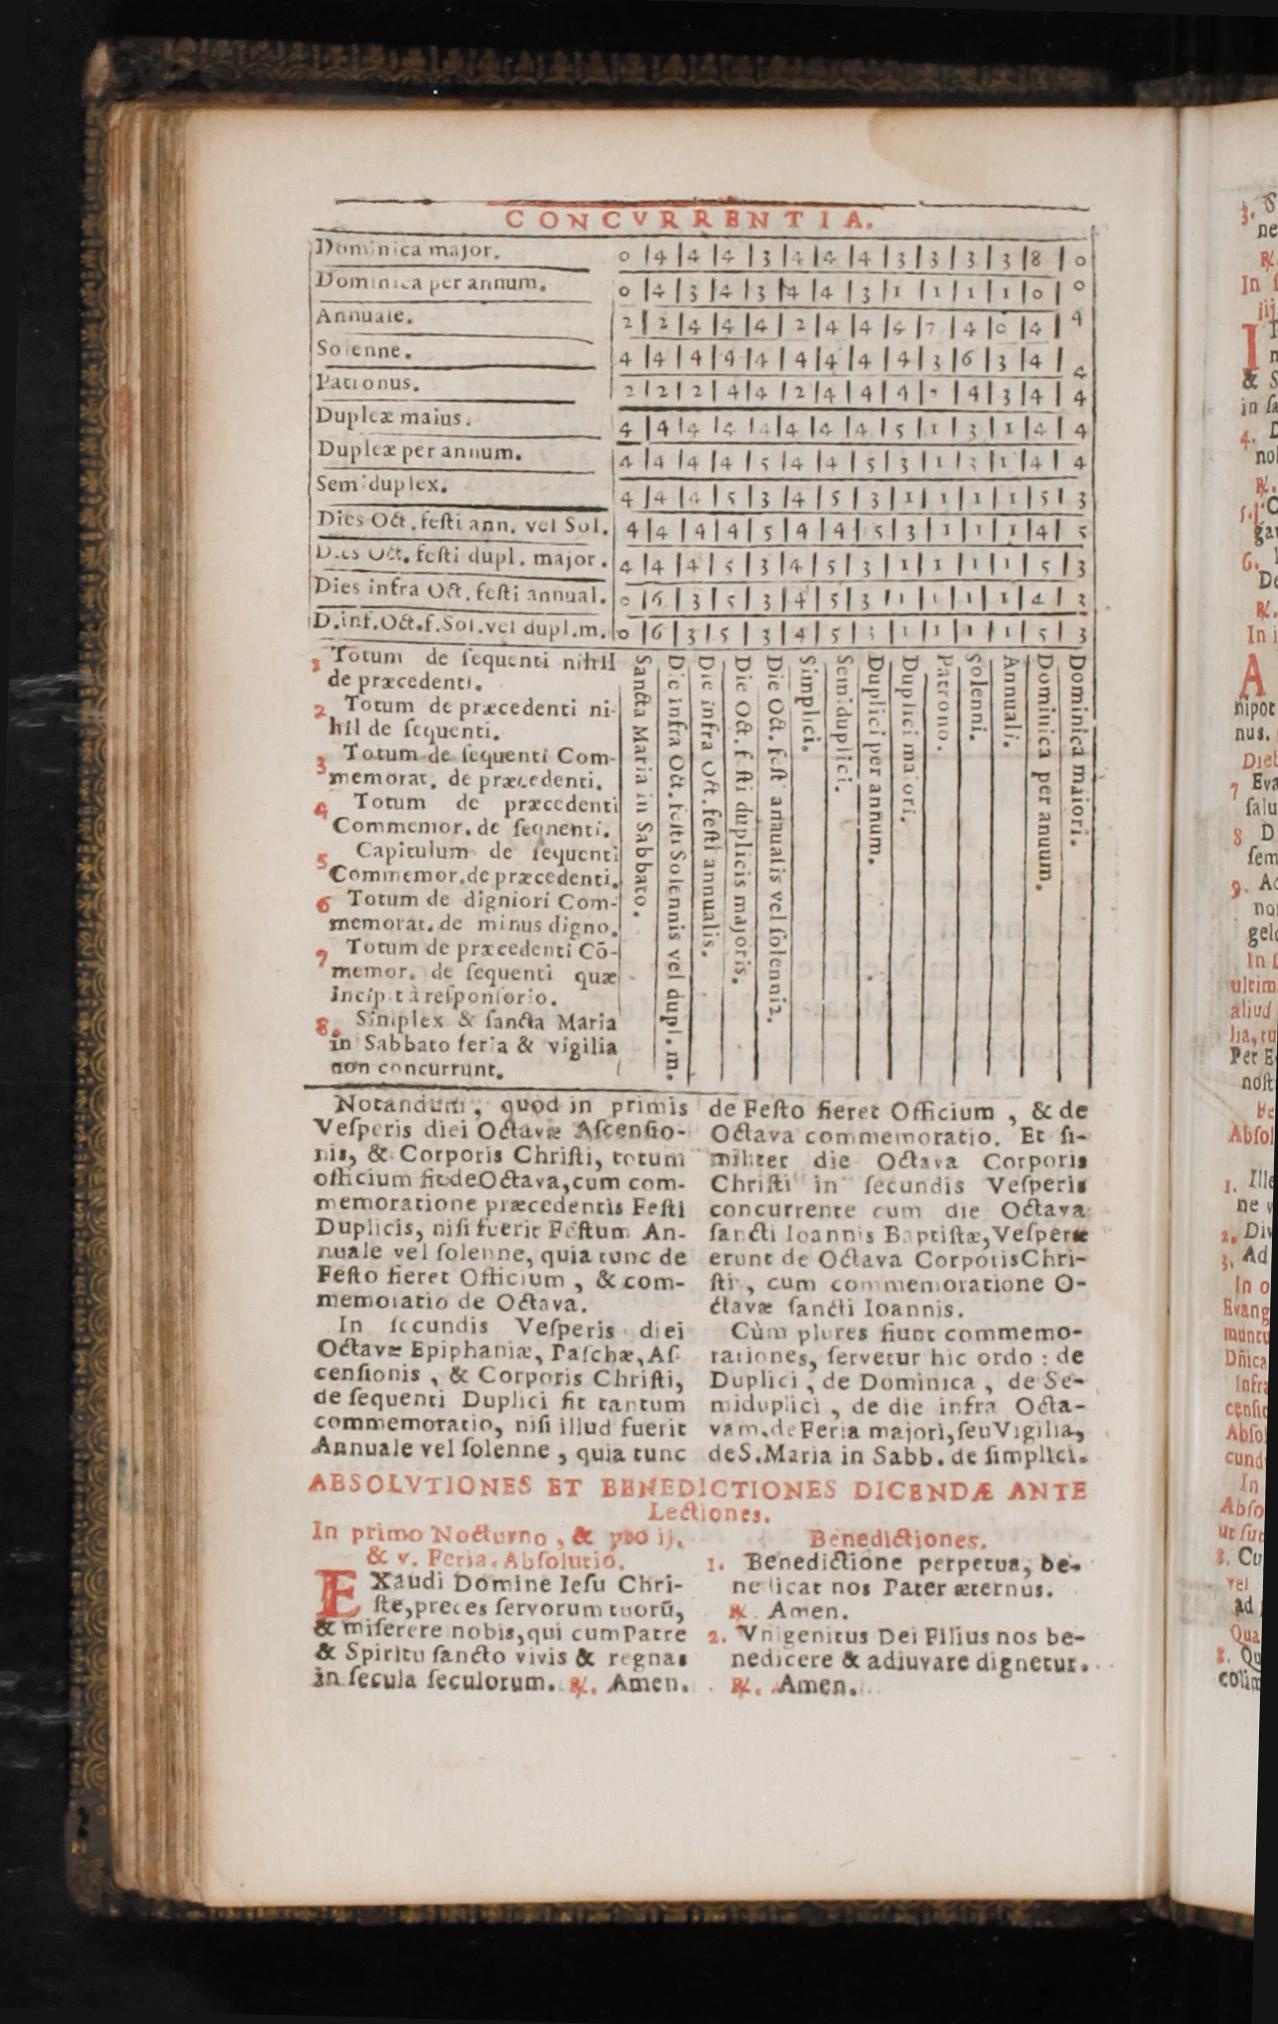 CONCVRRENTIA.
Dominica major. 0 | 4 | 4 | 4 | 3 | 4 | 4 | 4 | 3 | 3 | 3 | 3 | 8 | 0
Dominica per annum. 0 | 4 | 3 | 4 | 3 | 4 | 4 | 3 | 1 | 1 | 1 | 1 | 0 | 0
Annuale. 2 | 2 | 4 | 4 | 4 | 2 | 4 | 4 | 4 | 7 | 4 | 0 | 4 | 4
Solenne. 4 | 4 | 4 | 4 | 4 | 4 | 4 | 4 | 4 | 3 | 6 | 3 | 4 | 4
Patronus. 2 | 2 | 2 | 4 | 4 | 2 | 4 | 4 | 4 | | 4 | 3 | 4 | 4
Duplexæ maius. 4 | 4 | 4 | 4 | 4 | 4 | 4 | 4 | 5 | 1 | 3 | 1 | 4 | 4
Duplexæ per annum. 4 | 4 | 4 | 4 | 5 | 4 | 4 | 5 | 3 | 1 | 3 | 1 | 4 | 4
Semiduplex. 4 | 4 | 4 | 5 | 3 | 4 | 5 | 3 | 1 | 1 | 1 | 1 | 5 | 3
Dies Oct. festi ann. vel Sol. 4 | 4 | 4 | 4 | 5 | 4 | 4 | 5 | 3 | 1 | 1 | 1 | 4 | 5
Dies Oct. festi dupl. major. 4 | 4 | 4 | 5 | 3 | 4 | 5 | 3 | 1 | 1 | 1 | 1 | 5 | 3
Dies infra Oct. festi annual. 0 | 6 | 3 | 5 | 3 | 4 | 5 | 3 | 1 | 1 | 1 | 1 | 4 | 3
D.inf.Oct.f.Sol.vel dupl.m. 0 | 6 | 3 | 5 | 3 | 4 | 5 | 3 | 1 | 1 | 1 | 1 | 5 | 3
1 Totum de sequenti nihil
de præcedenti.
2 Totum de præcedenti ni-
hil de sequenti.
3 Totum de sequenti Com-
memorat. de præcedenti.
4 Totum de præcedenti
Commemor. de seqnenti.
5 Capitulum de sequenti
Commemor.de præcedenti.
6 Totum de digniori Com-
memorat. de minus digno.
7 Totum de præcedenti Cō-
memor. de sequenti quæ
incipit à responsorio.
8. Simplex & sancta Maria
in Sabbato feria & vigilia
non concurrunt.
Sancta Maria in Sabbato.
Die infra Oct. festi Solennis vel dupl. m.
Die infra Oct. festi annualis.
Die Oct. festi duplicis majoris.
Die Oct. fest annualis vel solennis.
Simplici.
Semiduplici.
Duplici per annum.
Duplici maiori.
Patrono.
Solenni.
Annuali.
Dominica per anuum.
Dominica maiori.
Notandum, quod in primis
Vesperis diei Octavæ Ascensio-
nis, & Corporis Christi, totum
officium fit de Octava, cum com-
memoratione præcedentis Festi
Duplicis, nisi fuerit Festum An-
nuale vel solenne, quia tunc de
Festo fieret Officium, & com-
memoratio de Octava.
In secundis Vesperis diei
Octavæ Epiphaniæ, Paschæ, As-
censionis, & Corporis Christi,
de sequenti Duplici fit tantum
commemoratio, nisi illud fuerit
Annuale vel solenne, quia tunc
de Festo fieret Officium, & de
Octava commemoratio. Et si-
militer die Octava Corporis
Christi in secundis Vesperis
concurrente cum die Octava
sancti Ioannis Baptistæ, Vesperæ
erunt de Octava Corporis Chri-
sti, cum commemoratione O-
ctavæ sancti Ioannis.
Cùm plures fiunt commemo-
rationes, servetur hic ordo: de
Duplici, de Dominica, de Se-
miduplici, de die infra Octa-
vam, de Feria majori, seu Vigilia,
de S. Maria in Sabb. de simplici.
ABSOLVTIONES ET BENEDICTIONES DICENDÆ ANTE
Lectiones.
In primo Nocturno, & pro ij.
& v. Feria. Absolutio.
EXaudi Domine Iesu Chri-
ste, preces servorum tuorū,
& miserere nobis, qui cum Patre
& Spiritu sancto vivis & regnas
in secula seculorum. ℟. Amen.
Benedictiones.
1. Benedictione perpetua, be-
nedicat nos Pater æternus.
℟. Amen.
2. Vnigenitus Dei Filius nos be-
nedicere & adiuvare dignetur.
℟. Amen.